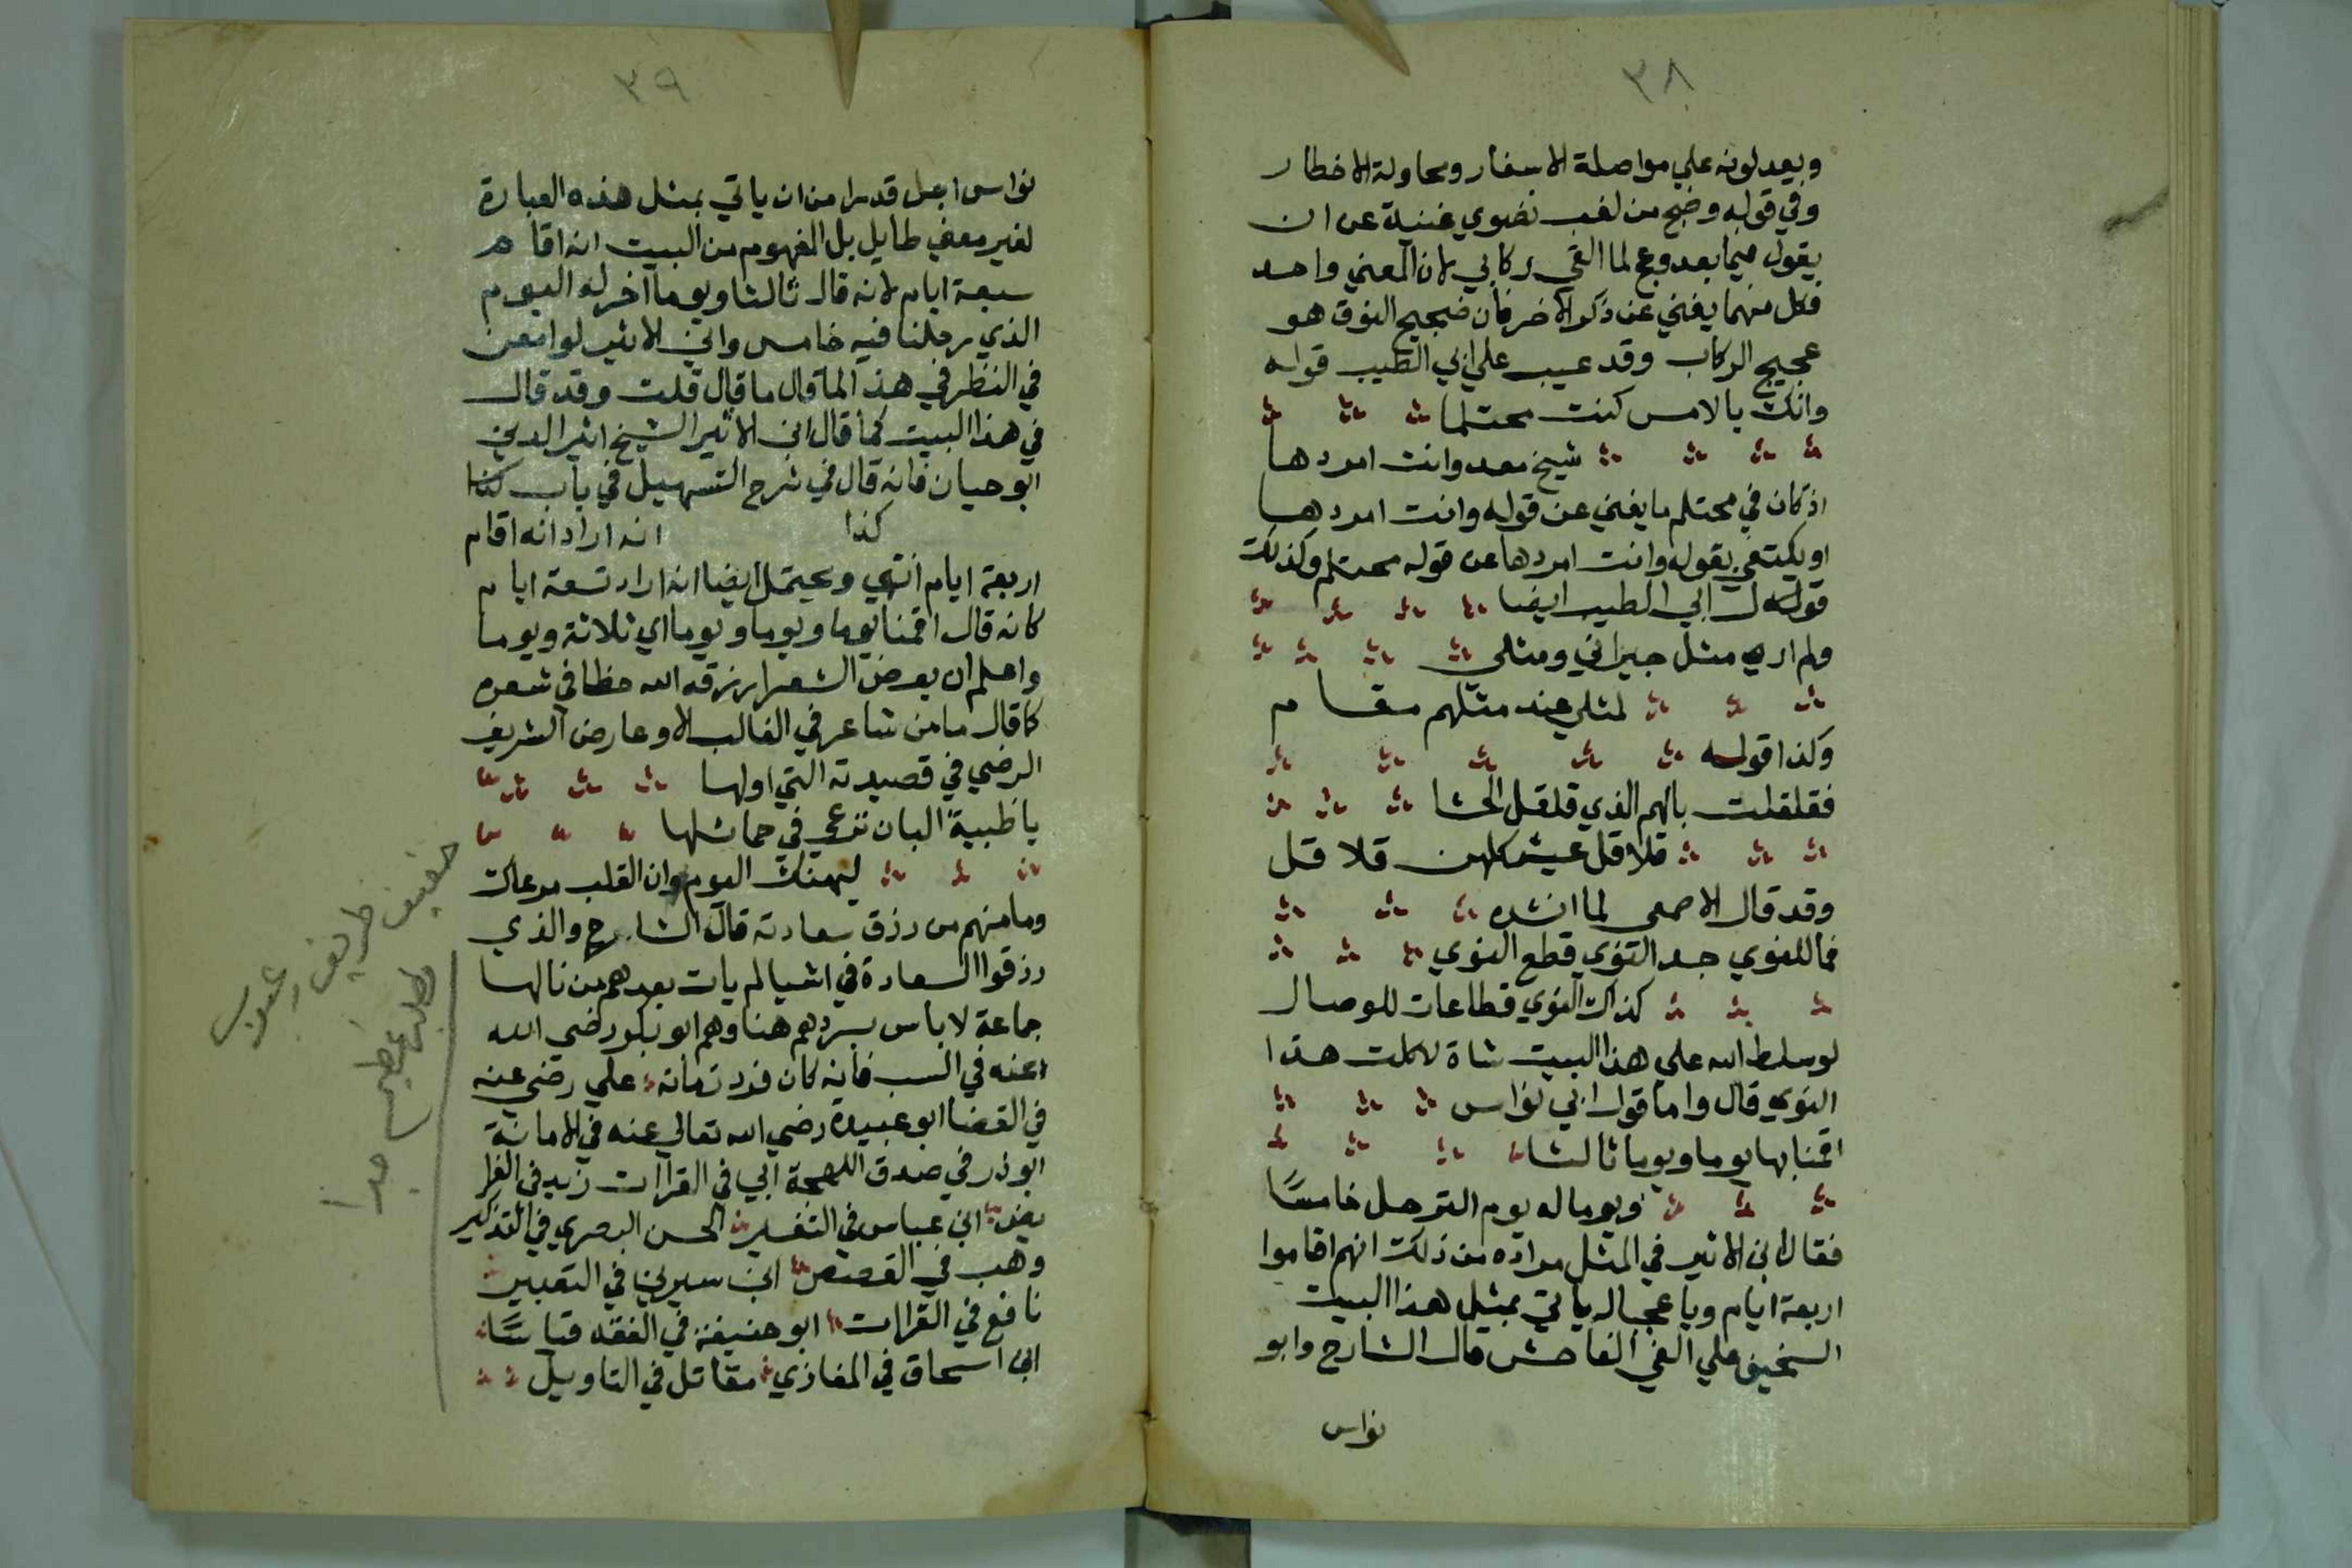 ٣٨
ويعدلونه علي مواصلة الاسفار ومحاولة الاخطار
وفي قوله وضج من لغب نضوي غنية عن ان
يقول فيما بعد وعج لما القي ركابي لان المعني واحد
فكل منهما يغني عن ذكر الاخر فان ضجيج النوق هو
عجيج الركاب وقد عيب علي ابي الطيب قوله
وانك بالامس كنت محتلما
شيخ معد وانت امردها
اذ كان في محتلم ما يغني عن قوله وانت امردها
او يكتفي بقوله وانت امردها عن قوله محتلم وكذلك
قول ابي الطيب ايضا
ولم ار مثل جيراني ومثلي
لمثلي عند مثلهم مقام
وكذا قوله
فقلقلت بالهم الذي قلقل الحشا
قلاقل عيس كلهن قلاقل
وقد قال الاصمعي لما انشده
فما للنوي جد النوي قطع النوي
كذاك النوي قطاعات للوصال
لو سلط الله علي هذا البيت شاة لاكلت هذا
النوي قال واما قول ابي نواس
اقمنا بها يوما ويوما ثالثا
ويوما له يوم الترحل خامسًا
فقال ابن الاثير في المثل مراده من ذلك انهم اقاموا
اربعة ايام ويا عجبا له ياتي بمثل هذا البيت
السخيف علي الغي الفاحش قال الشارح وابو
نواس
٣٩
نواس اجل قدرا من ان ياتي بمثل هذه العبارة
لغير معني طايل بل المفهوم من البيت انه اقام
سبعة ايام لانه قال ثالثا ويوما اخر له اليوم
الذي رحلنا فيه خامس وابن الاثير لو امعن
في النظر في هذا لما قال ما قال قلت وقد قال
في هذا البيت كما قال ابن الاثير الشيخ اثير الدين
ابو حيان فانه قال في شرح التسهيل في باب كذا
كذا انه اراد انه اقام
اربعة ايام انتهي ويحتمل ايضا انه اراد تسعة ايام
كانه قال اقمنا يوما ويوما ويوما اي ثلاثة ويوما
واعلم ان بعض الشعرا رزقه الله حظا في شعره
كما قال ما من شاعر في الغالب الا وعارض الشريف
الرضي في قصيدته التي اولها
يا ظبية البان ترعي في خمائلها
ليهنك اليوم ان القلب مرعاك
وما منهم من رزق سعادته قال الشارح والذي
رزقوا السعادة في اشيا لم يات بعدهم من نالها
جماعة لا باس بسردهم هنا وهم ابو بكر رضي الله
عنه في النسب فانه كان فرد زمانه علي رضي عنه
في القضا ابو عبيدة رضي الله تعالي عنه في الامانة
ابو ذر في صدق اللهجة ابي في القراات زيد في الفرا
يض ابن عباس في التفسير الحسن البصري في التذكير
وهب في القصص ابن سيرين في التعبير
نافع في القراات ابو حنيفة في الفقه قياسًا
ابن اسحاق في المغازي مقاتل في التاويل